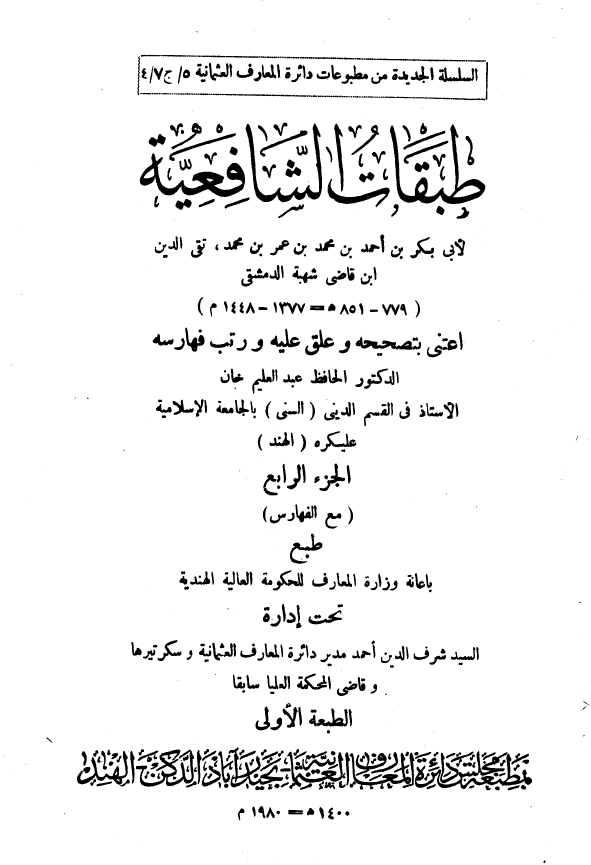 السلسلة الجديدة من مطبوعات دائرة المعارف العثمانية ٥/ ج ٤/٧
طبقات الشافعية
لأبي بكر بن أحمد بن محمد بن عمر بن محمد، تقى الدين
ابن قاضى شهبة الدمشقى
( ٧٧٩ - ٨٥١ ﻫ = ١٣٧٧ - ١٤٤٨ م )
اعتنى بتصحيحه و علق عليه و رتب فهارسه
الدكتور الحافظ عبد العليم خان
الاستاذ فى القسم الدينى ( السنى ) بالجامعة الإسلامية
عليكره ( الهند )
الجزء الرابع
( مع الفهارس )
طبع
باعانة وزارة المعارف للحكومة العالية الهندية
تحت إدارة
السيد شرف الدين أحمد مدير دائرة المعارف العثمانية و سكرتيرها
و قاضى المحكمة العليا سابقا
الطبعة الأولى
بمطبعة مجلس دائرة المعارف العثمانية بحيدرآباد الدكن الهند
١٤٠٠ ﻫ = ١٩٨٠ م